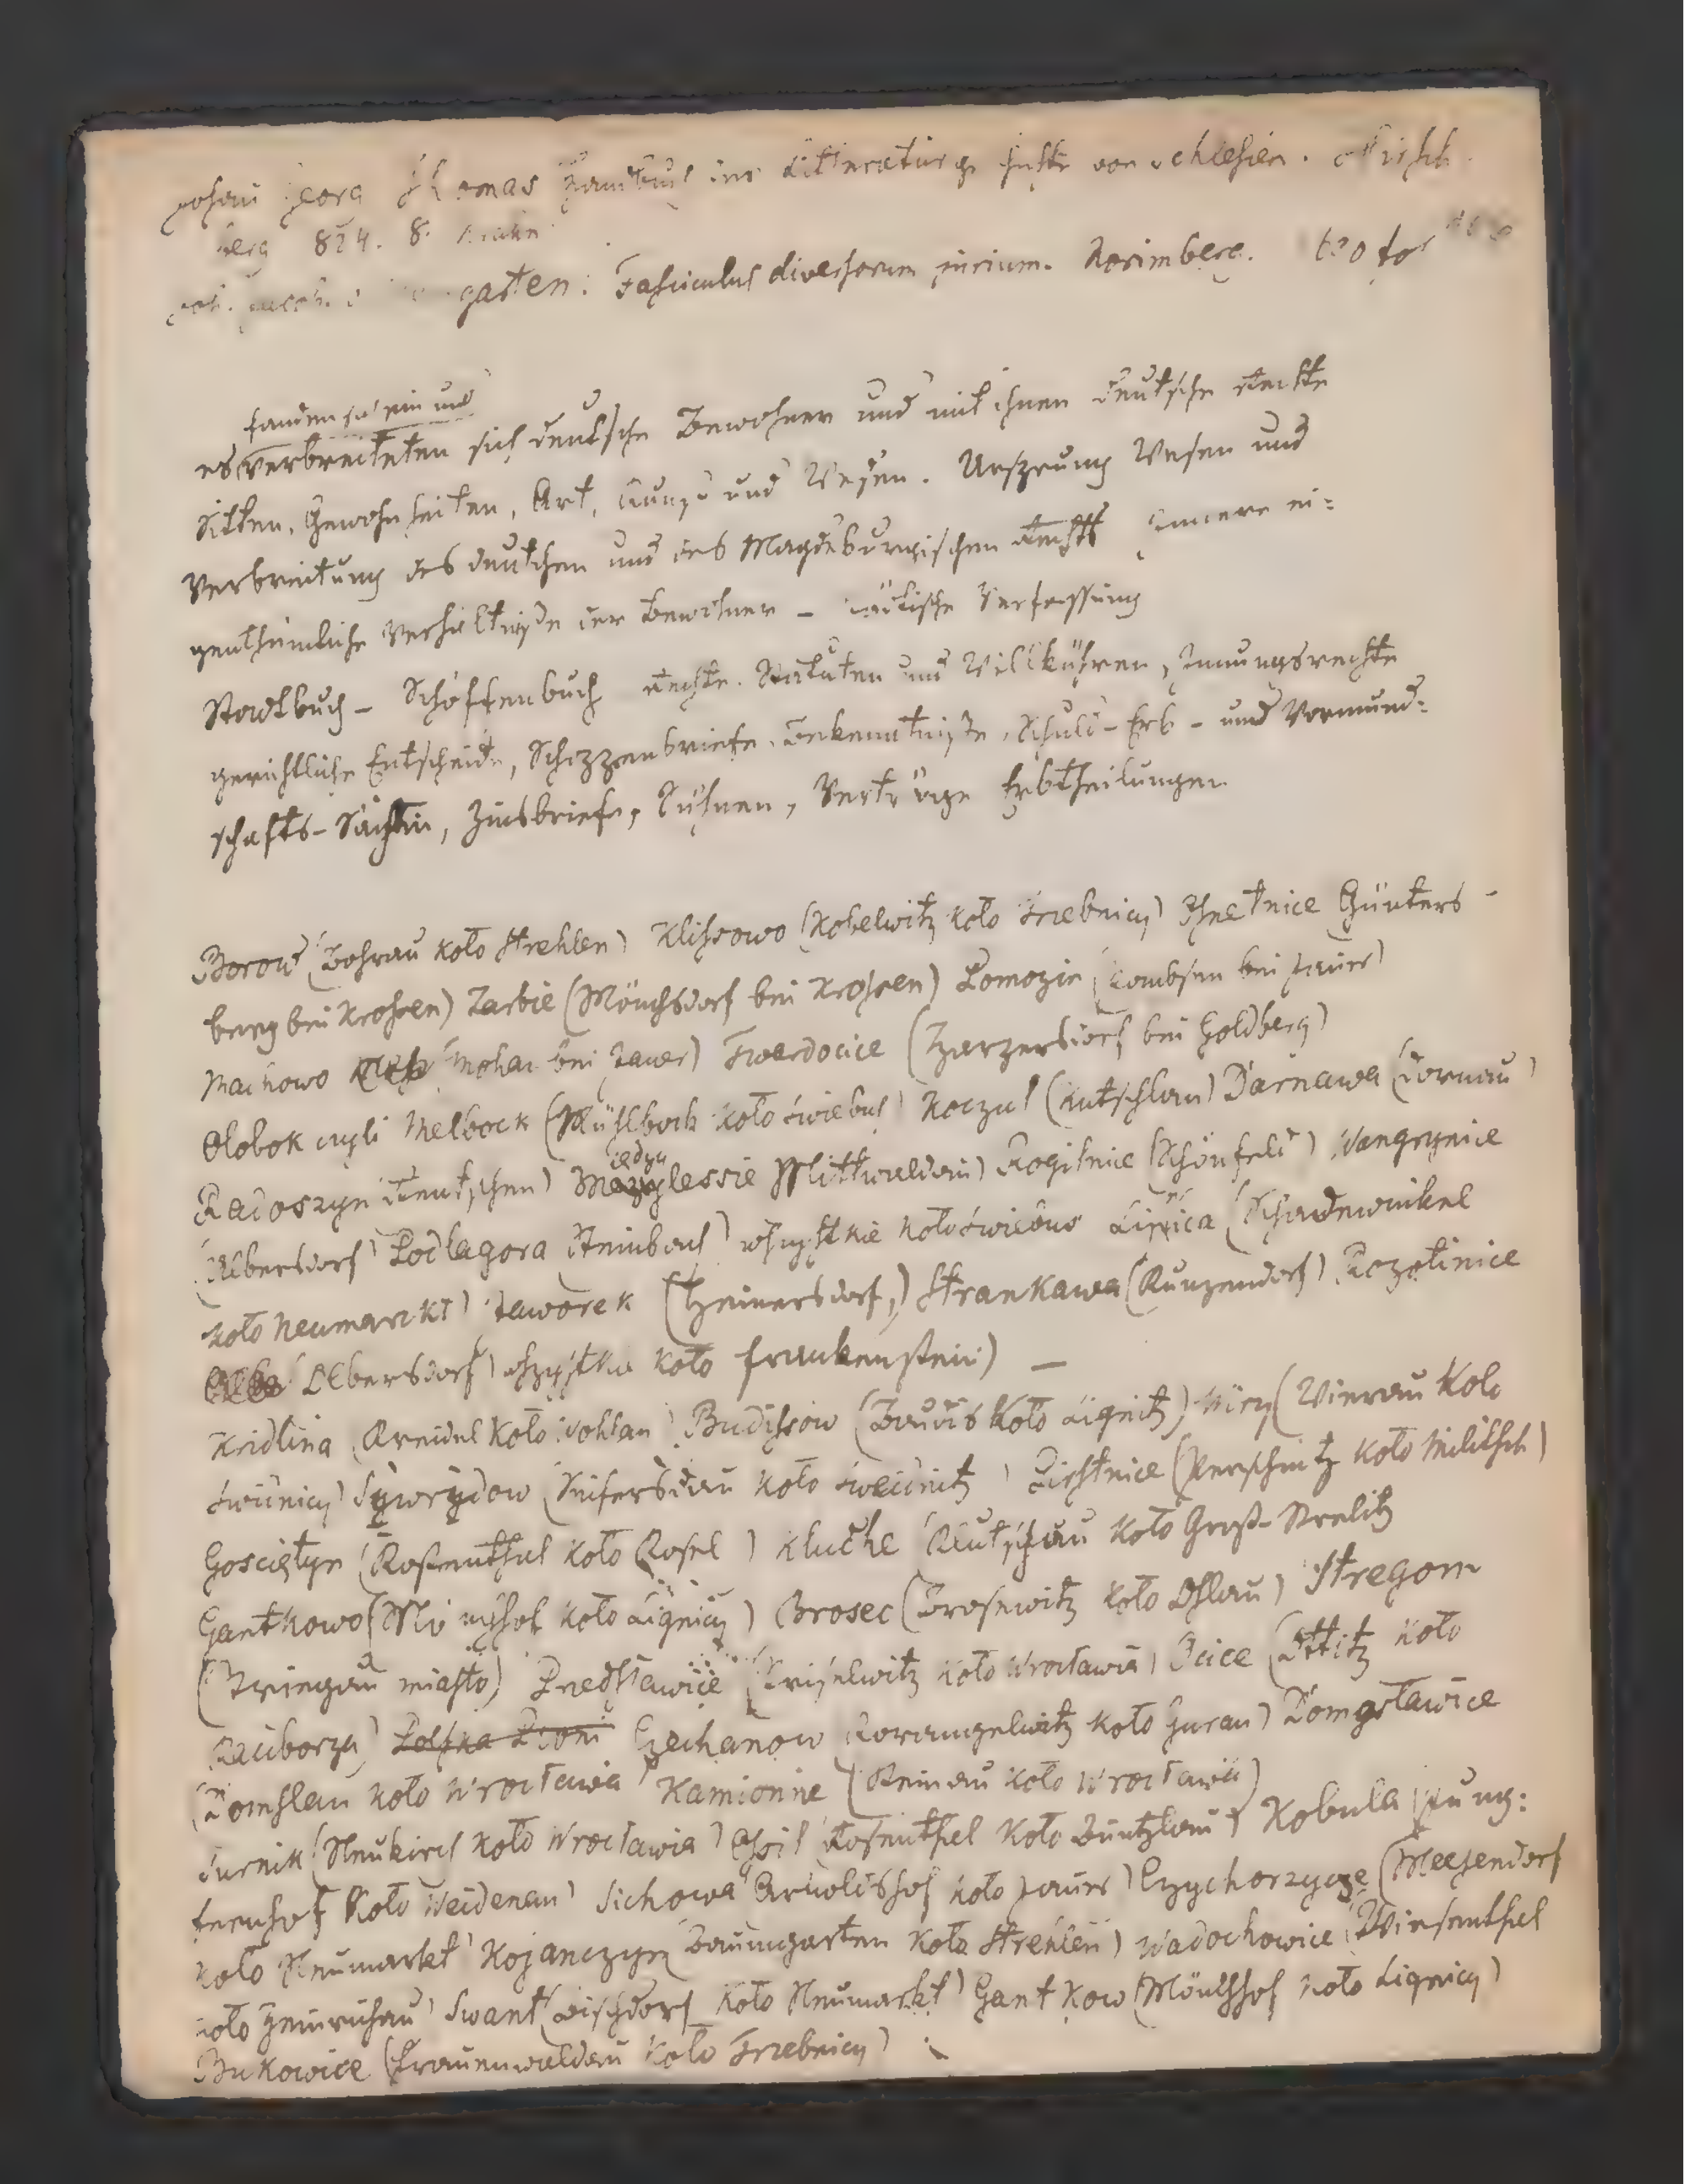 Johan Georg Thomas Handbuch der Litteraturg hichte von Schlesien. Hirschb
berg 824. 8.
Joh. Jacob. garten: Fasciculus diversorum jurium. Norimberg.
fanden sich ein und
es verbreiteten sich deutsche Bewohner und mit ihnen deutsche Rechte
Sitten, Gewohnheiten, Art, Kunst und Wesen. Ursprung Wesen und
Verbreitung des deutschen und des Magdeburgischen Rechts innere ei=
genthümliche Verhältniße der Bewohner – städtische Verfassung
Stadtbuch – Schöffenbuch Rechte. Statuten und Willkühren, Innungsrechte
gerichtliche Entscheide, Schoppenbriefe, Bekenntniße, Schuld – Erb – und Vormund=
schafts – Sachen, Zinsbriefe, Sühnen, Verträge Erbtheilungen
Borow (Bohrau koło Strehlen) Klissowo (Kobelwitz koło Trzebnicy) Gnetnice Günters –
berg bei Krossen) Zarbie (Mönchsdorf bei Krossen) Pomozin (Pombsen bei Jauer)
Machowo Mohau bei Jauer) Twerdocice (Harpersdorf bei Goldberg)
Olobok czyli Melbock (Mühlbock koło Świebus) Koczul (Kutschlau) Darnawa (Dornau)
iedzy
Radoszyn Rentschen) Međzylessie Mittwaldau) Rogitnice (Schönfeld) Wangrynice
(Olbersdorf) Podlagora Steinbach) wszystkie koło Świebus Lipnica (Schadewinkel
koło Neumarkt) Jaworek (Heinersdorf,) Strankawa (Kunzendorf) Kozolinice
Olbersdorf) wszystkie koło Frankenstein) —
Kridlina Kreidel koło Wohlau) Budissow (Baudis koło Lignitz) Wiry (Wierau koło
Świdnicy) Sywrydow (Seifersdau koło Sweidnitz) Pirstnice (Perschnitz koło Militsch)
Goscięтyn (Rostenthal koło Kosel) Kluche Klutschau koło Groß-Strelitz
Gantkowo (Mönchhof koło Lignicy) Brosec (Brosewitz koło Ohlau) Stregom
(Striegau miasto) Predslawice (Priselwitz koło Wrocławia) Ocice (Ottitz koło
Raciborza) Polska Czechanow Korangelwitz koło Gurau) Domasławice
(Domslau koło Wrocławia) Kamionne (Steinau koło Wrocławia)
Żurnik (Neukirch koło Wrocławia) Ossil Rosenthal koło Buntzlau) Kobula Jung:
fernhof koło Weidenau) Sichowa Arnoldshof koło Jauer) Czychorzycze (Meesendorf
koło Neumarkt) Kojanczyn Baumgarten koło Strehlen) Wadochowice Wiesenthal
koło Heinrichau) Swant (Bischdorf koło Neumarkt) Gantkow (Mönchhof koło Lignicy)
Bukowice (Frauenwaldau koło Trzebnicy)